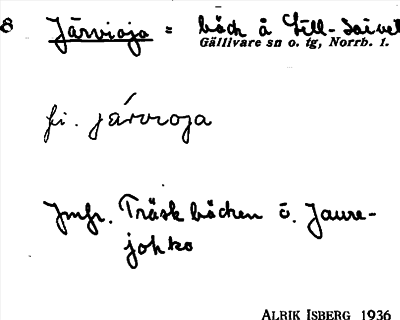 8 Järvioja = bäck å Lill-Saivel
Gällivare sn o. tg, Norrb. l.
fi. järvioja
Jmfr. Träskbäcken o. Jaure-
johko
ALRIK ISBERG 1936